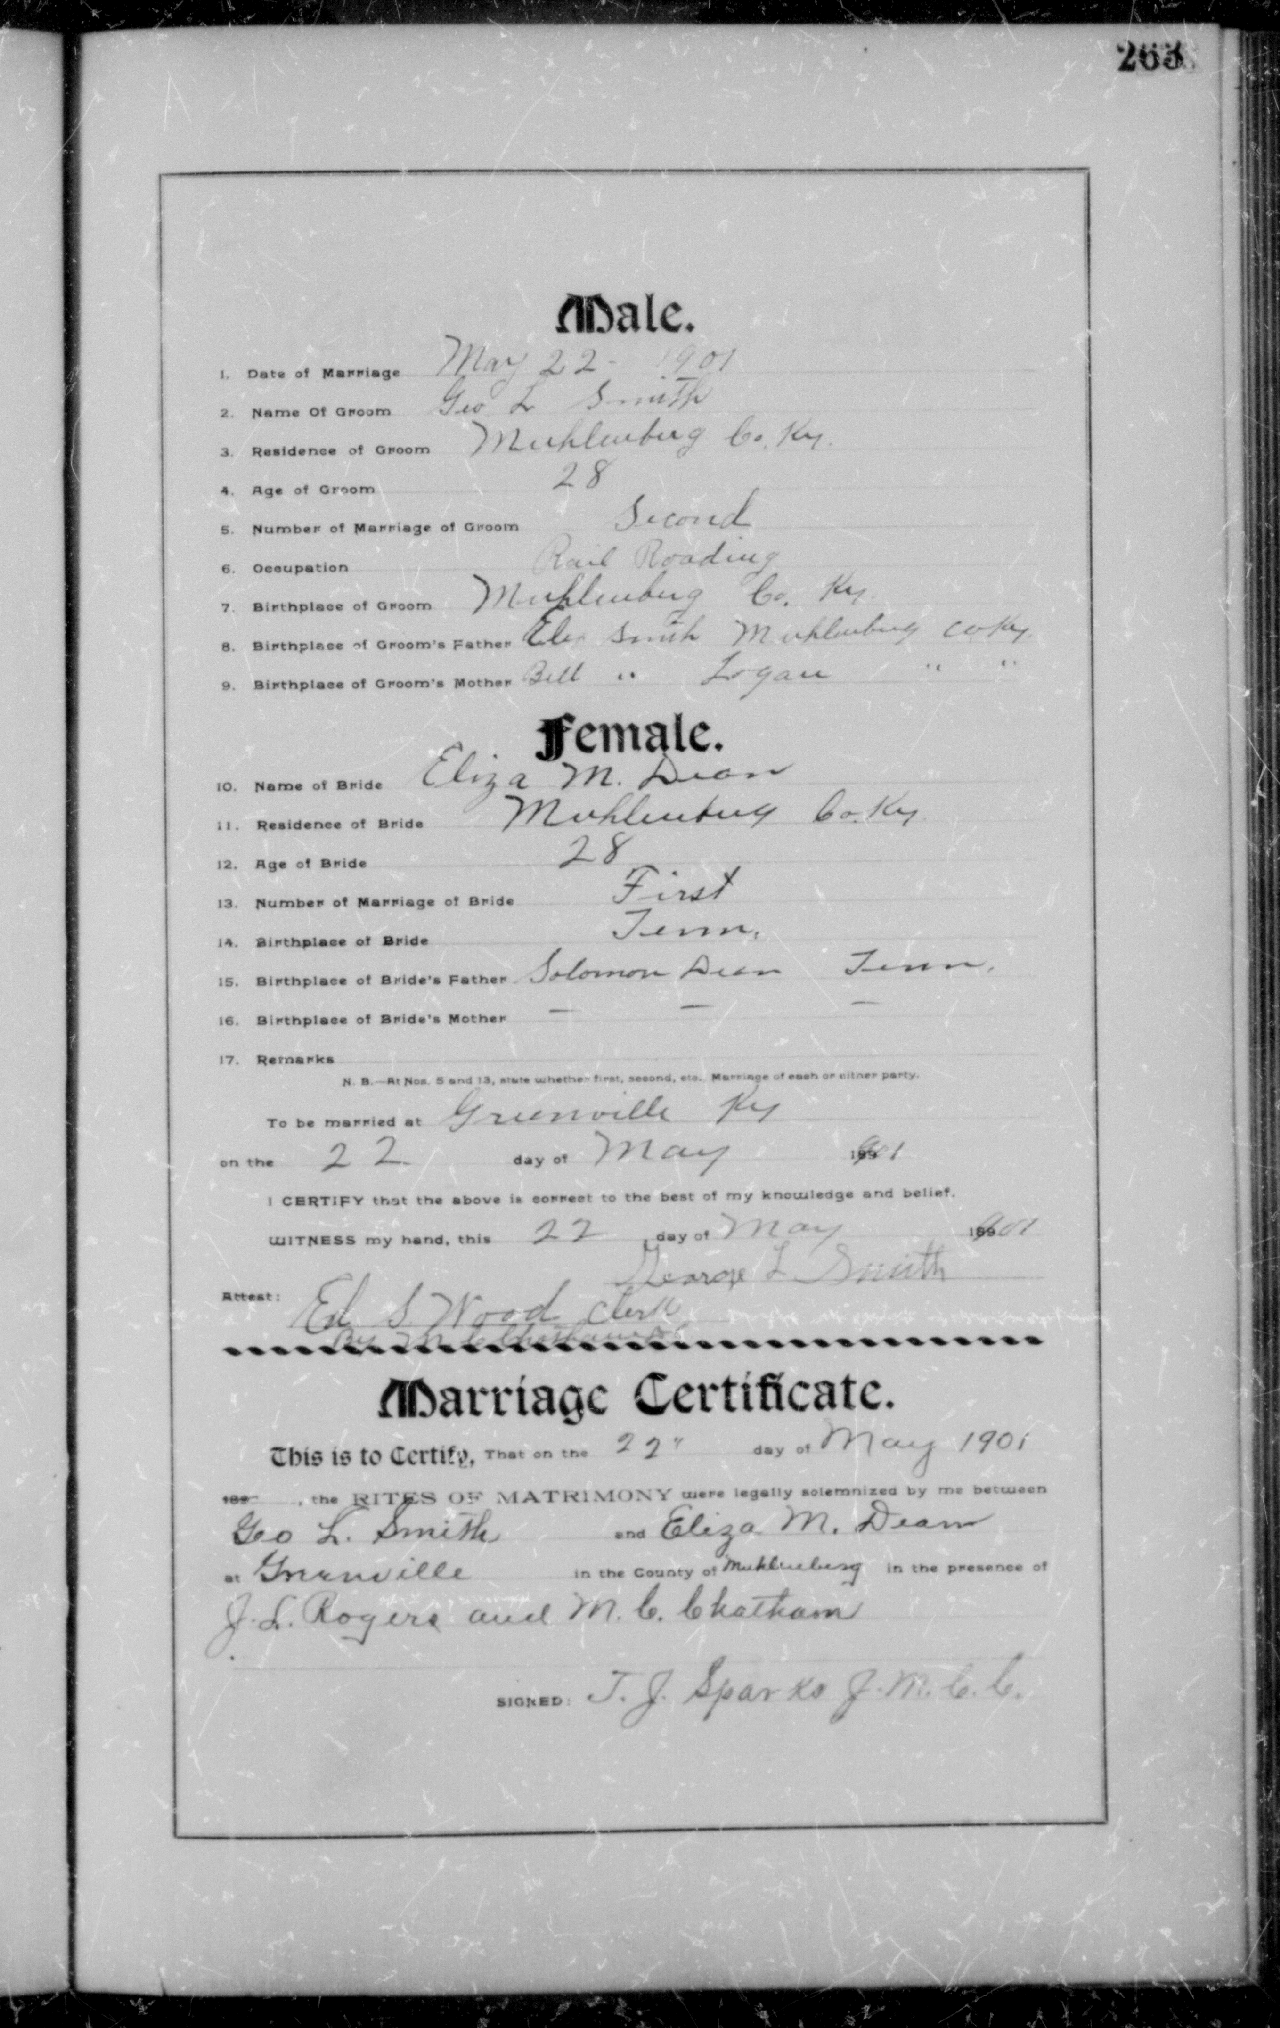 263
Male.
1. Date of Marriage May 22 - 1901
2. Name Of Groom Geo L Smith
3. Residence of Groom Muhlenburg Co. Ky.
4. Age of Groom 28
5. Number of Marriage of Groom Second
6. Occupation Rail Roading
7. Birthplace of Groom Muhlenburg Co. Ky.
8. Birthplace of Groom's Father Smith Muhlenburg Co Ky.
9. Birthplace of Groom's Mother Bell " Logan " "
Female.
10. Name of Bride Eliza M. Dean
11. Residence of Bride Muhlenburg Co. Ky.
12. Age of Bride 28
13. Number of Marriage of Bride First
14. Birthplace of Bride Tenn.
15. Birthplace of Bride's Father Solomon Dean Tenn.
16. Birthplace of Bride's Mother — — —
17. Remarks
N. B.—At Nos. 5 and 13, state whether first, second, etc., Marriage of each or either party.
To be married at Greenville Ky
on the 22 day of May 1901
I CERTIFY that the above is correct to the best of my knowledge and belief.
WITNESS my hand, this 22 day of May 1901
George L Smith
Attest: Ed S. Wood Clerk
By M. C. Chatham
Marriage Certificate.
This is to Certify, That on the 22" day of May 1901
189 , the RITES OF MATRIMONY were legally solemnized by me between
Geo L. Smith and Eliza M. Dean
at Greenville in the County of Muhlenberg in the presence of
J. L. Rogers and M. C. Chatham
SIGNED: T. J. Sparks J. M. C. C.